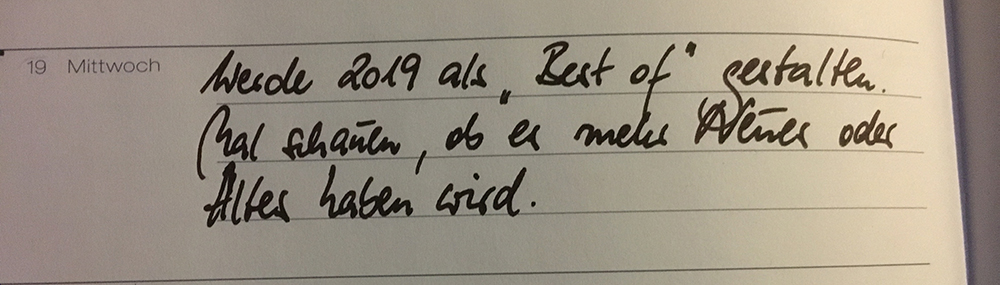 19 Mittwoch
Werde 2019 als „Best of“ gestalten.
Mal schauen, ob es mehr Neues oder
Altes haben wird.